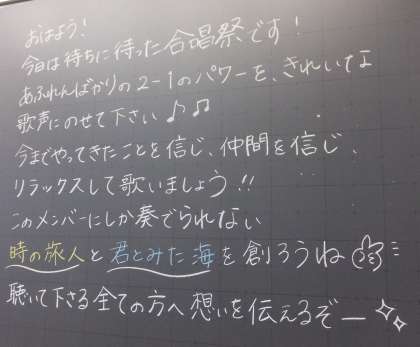 おはよう!
今日は待ちに待った合唱祭です!
あふれんばかりの2-1のパワーを、きれいな
歌声にのせて下さい♪♫
今までやってきたことを信じ、仲間を信じ、
リラックスして歌いましょう!!
このメンバーにしか奏でられない
時の旅人と君とみた海を創ろうね
聴いて下さる全ての方へ想いを伝えるぞー